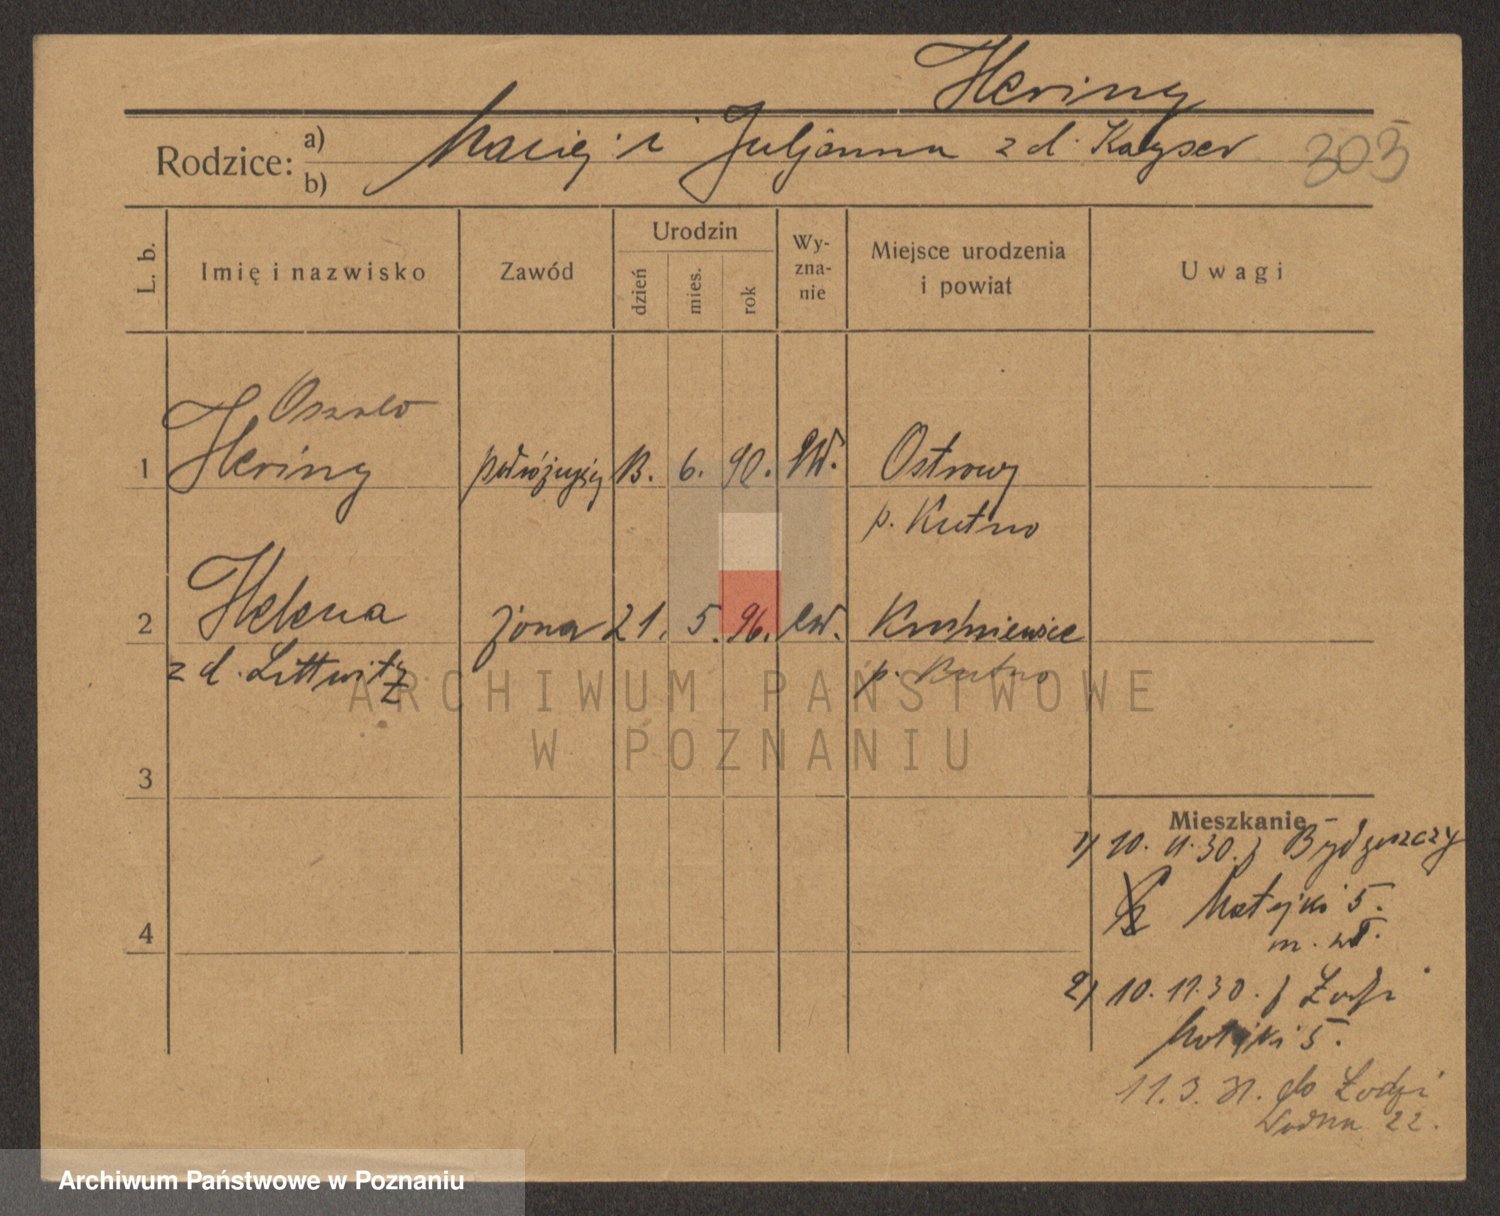 Hering
Rodzice: a) b) Maciej i Juljanna z d. Kayser
303
L. b.
Imię i nazwisko
Zawód
Urodzin
dzień
mies.
rok
Wy-
zna-
nie
Miejsce urodzenia
i powiat
Uwagi
Oswald
1 Hering podróżujący 13. 6. 90. ew. Ostrowy
p. Kutno
2 Helena żona 21. 5. 96. ew. Krośniewice
z d. Littwitz p. Kutno
3
Mieszkanie
1) 10. 11. 30. z Bydgoszczy
Matejki 5.
4
m. wł.
2) 10. 11. 30. z Łodzi
Matejki 5.
11. 3. 31. do Łodzi
Wodna 22.
ARCHIWUM PAŃSTWOWE
W POZNANIU
Archiwum Państwowe w Poznaniu